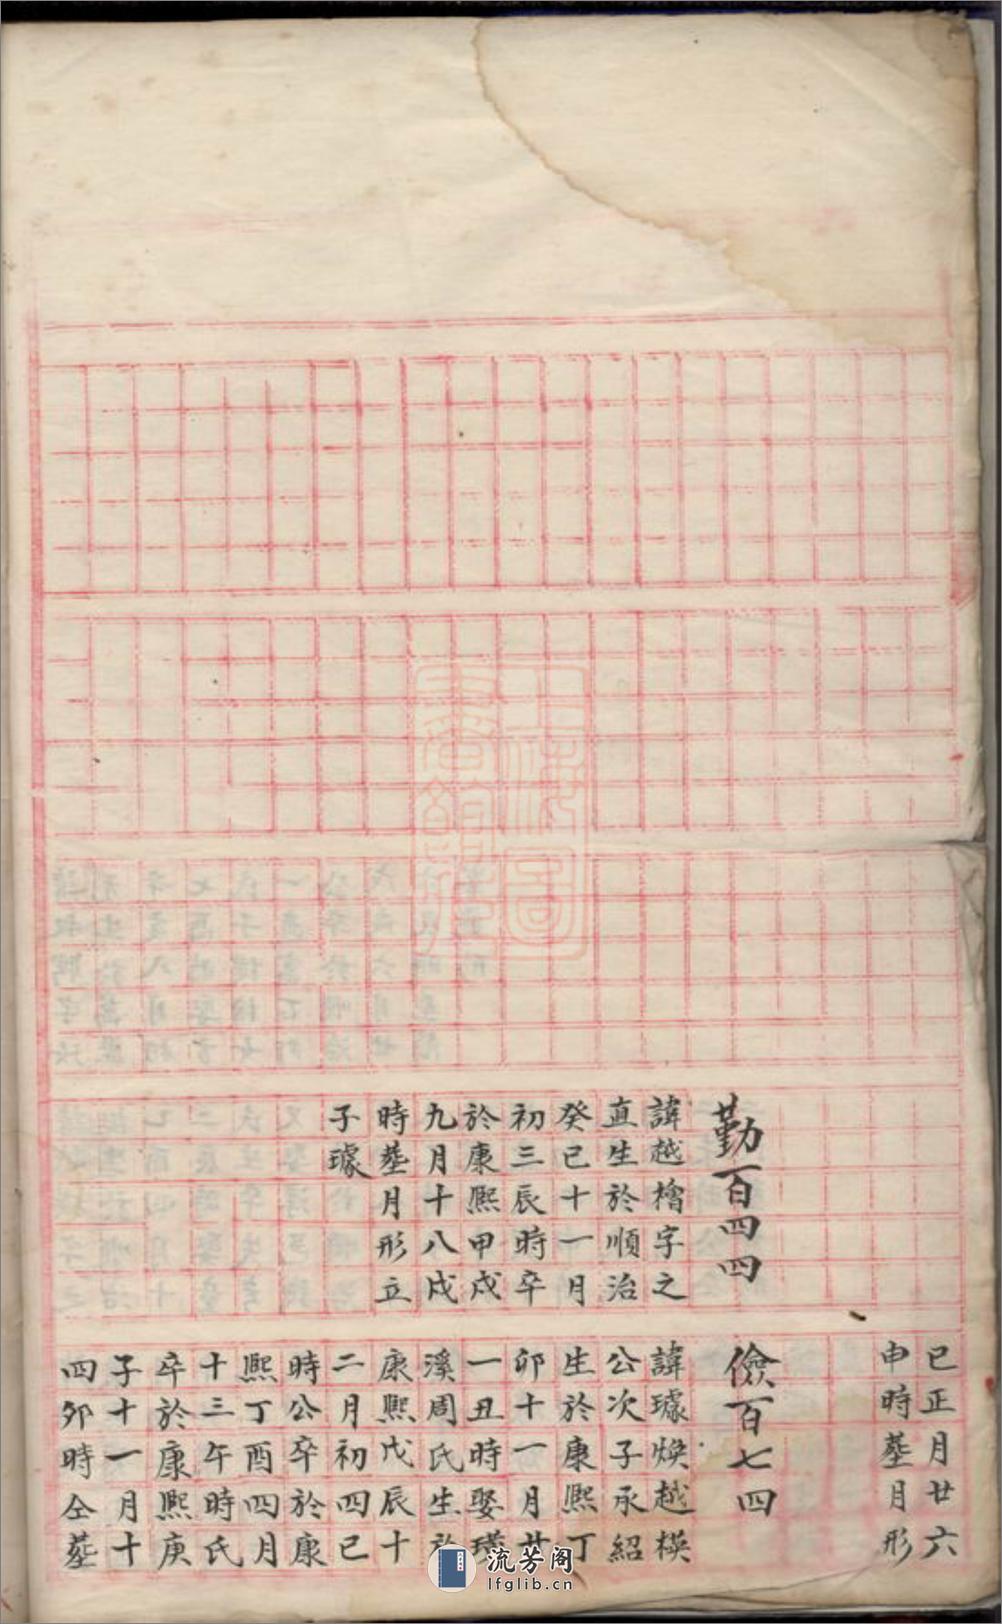 勤百四四
諱越檜字之
直生於順治
癸巳十一月
初三辰時卒
於康熙甲戌
九月十八戌
時塟月形立
子璩
巳正月廿六
申時塟月形
儉百七四
諱璩煥越模
公次子承紹
生於康熙丁
卯十一月廿
一丑時娶瑛
溪周氏生於
康熙戊辰十
二月初四巳
時公卒於康
熙丁酉四月
十三午時氏
卒於康熙庚
子十一月十
四卯時仝塟
流芳阁
lfglib.cn